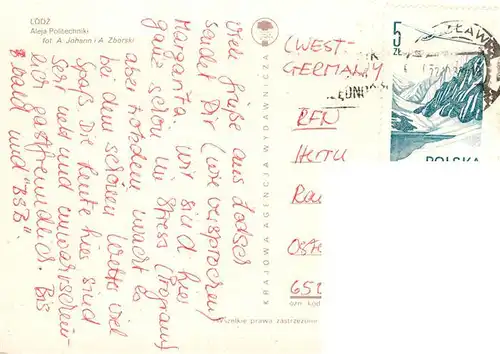 ŁÓDŹ
Aleja Politechniki
fot. A. Johann i A. Zborski
Viele Grüße aus Lodsch
sendet Dir (wie versprochen)
Margarita. Wir sind hier
ganz schön im Stress (Programm)
aber trotzdem macht es
bei dem schönen Wetter viel
Spaß. Die Leute hier sind
sehr nett und
gastfreundlich. Bis
bald und "BSB"
KRAJOWA AGENCJA WYDAWNICZA
Wszelkie prawa zastrzeżone
(WEST-
GERMANY)
RFN
Herrn
652
5
ZŁ
POLSKA